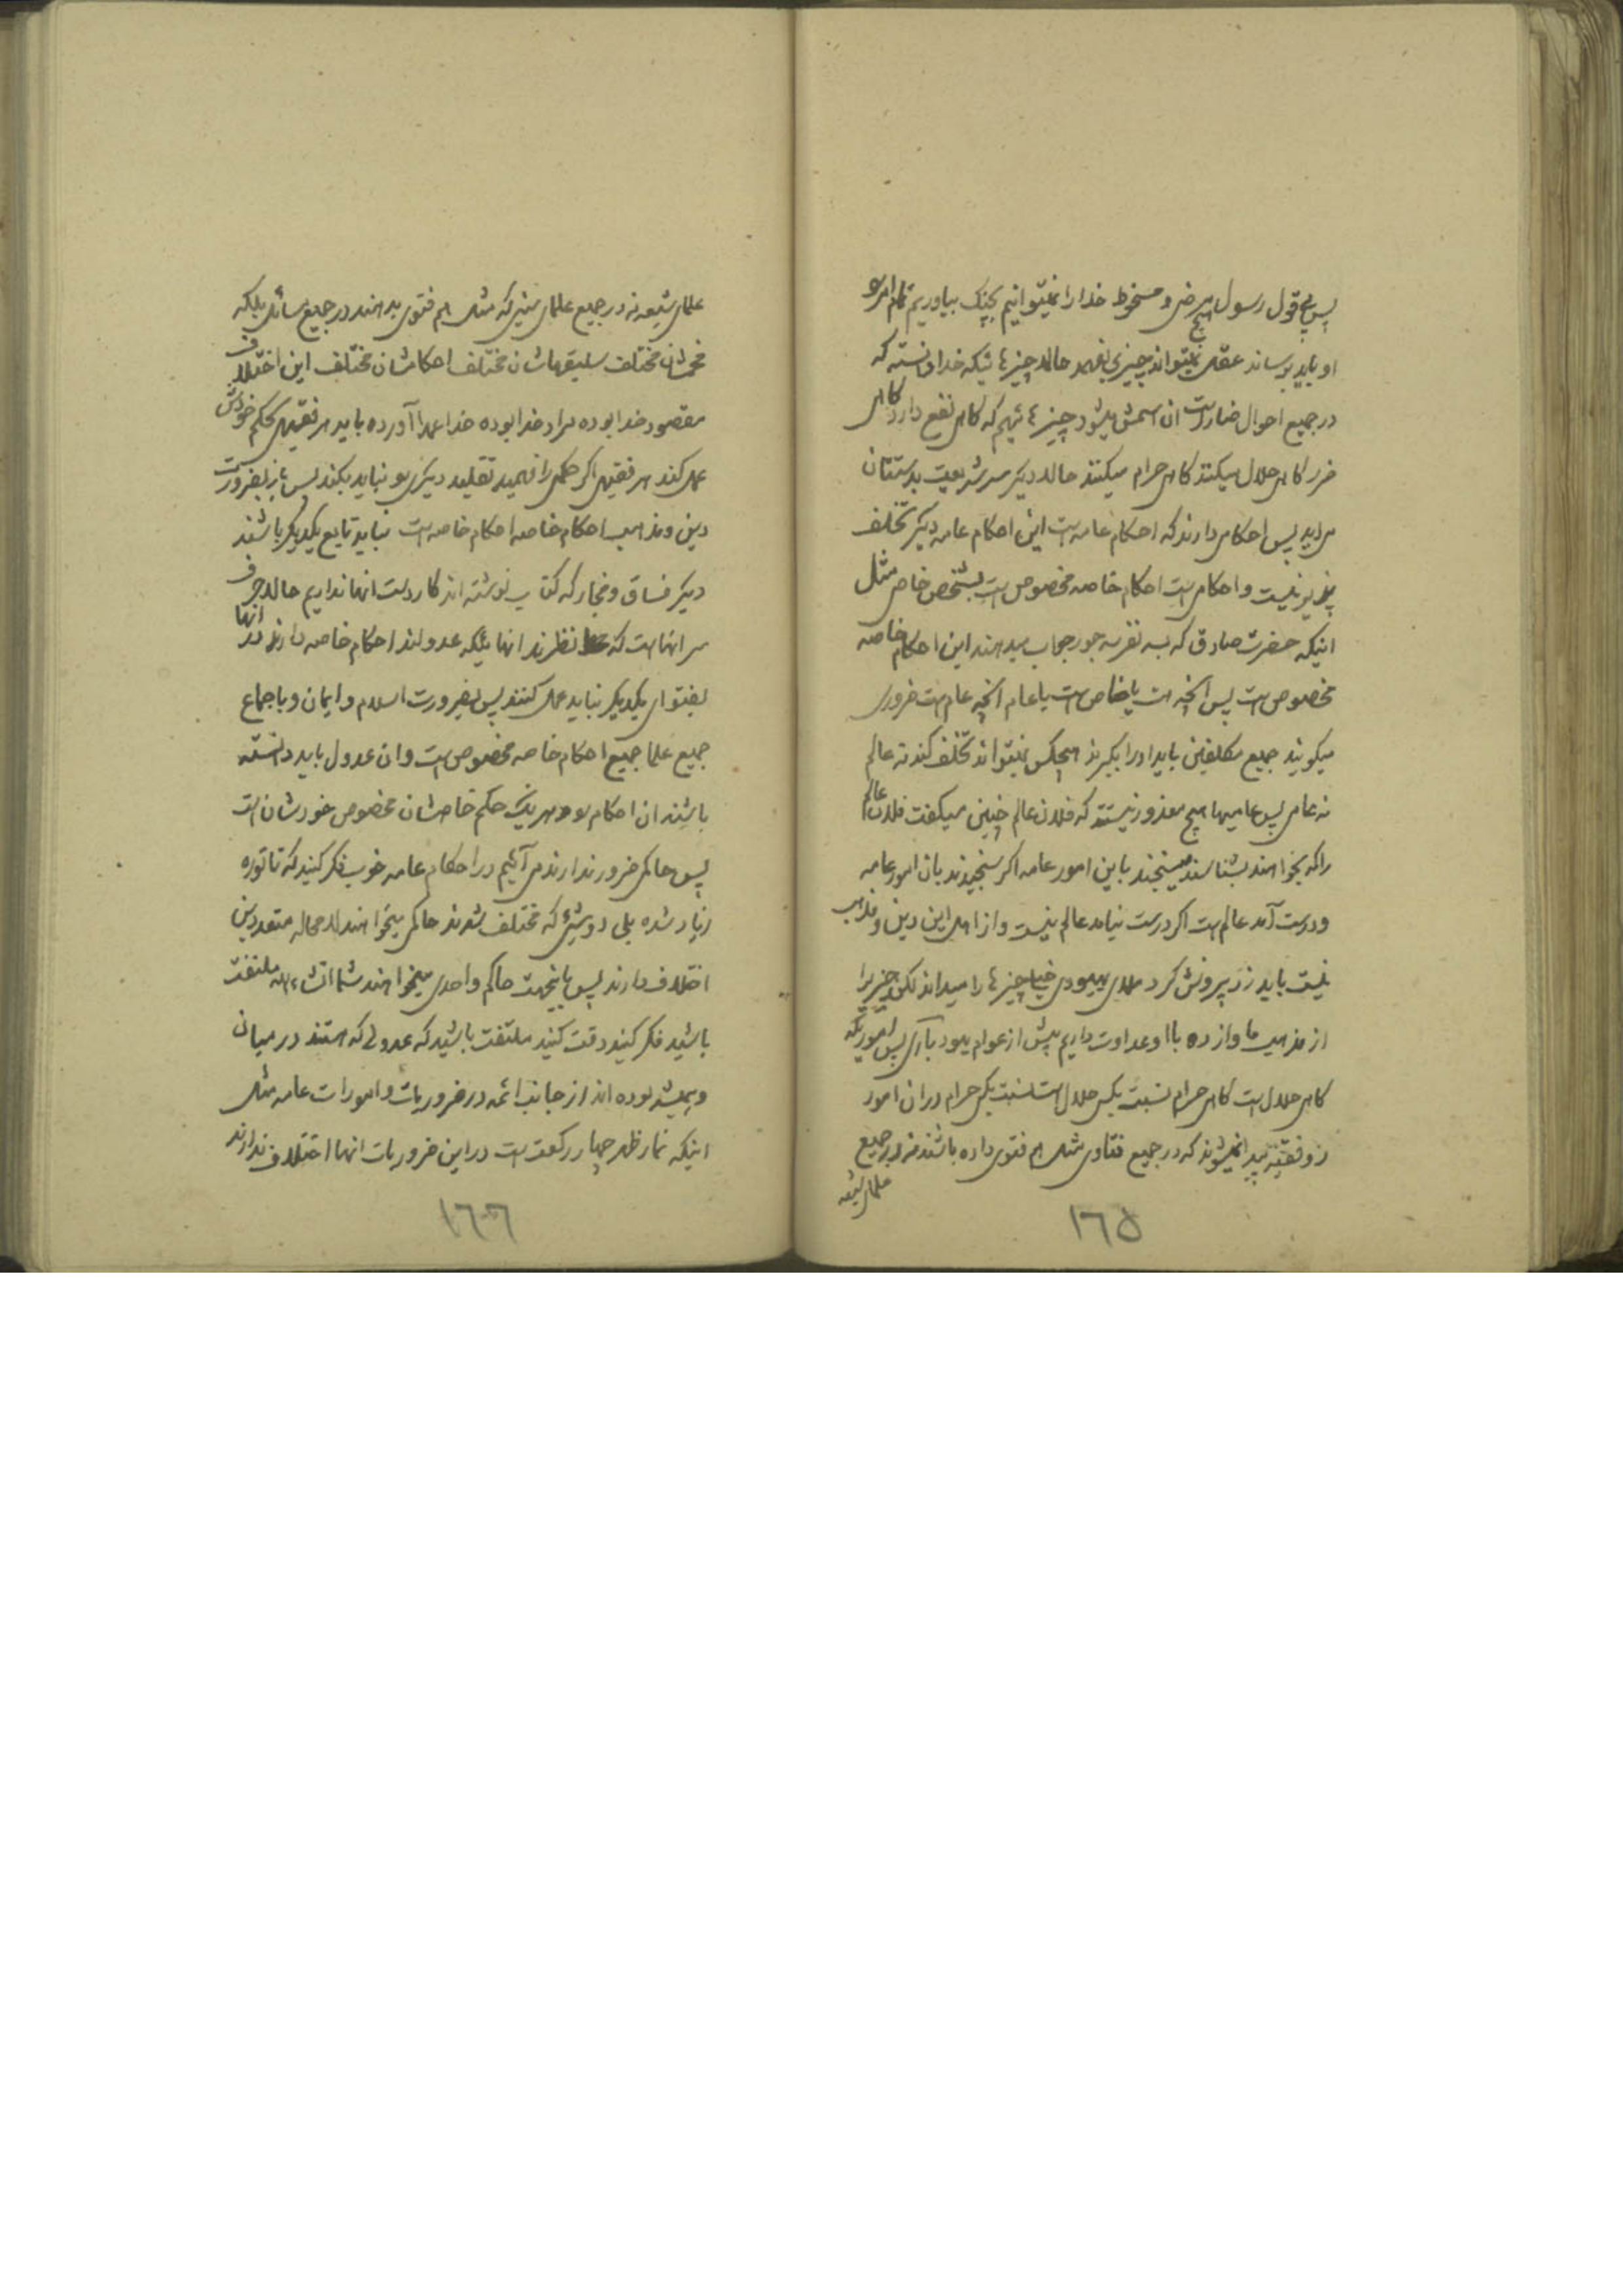 پس بی قول رسول مرضی و مسخوط خدا را نمیتوانیم بچنگ بیاوریم تمام امر
او باید برساند عقل هیچ نمیتواند چیزی بفهمد حالا چیزهائیکه خدا دانسته که
در جمیع احوال ضار است ان اسمش میشود چیزهائیهم که گاهی نفع دارد گاهی
ضرر گاهی حلال میکنند گاهی حرام میکنند حالا دیگر سر شریعت بدستتان
می آید پس احکامی دارند که احکام عامه است این احکام عامه دیگر تخلف
پذیر نیست و احکامی است احکام خاصه مخصوص است بشخص خاص مثل
اینکه حضرت صادق که بسه نفر سه جور جواب میدهند این احکام خاصه
مخصوص است پس انچه هست یا خاص است یا عام انچه عام است ضروری
میگویند جمیع مکلفین باید او را بگیرند هیچکس نمیتواند تخلف کند نه عالم
نه عامی پس عامیها هیچ معذور نیستند که فلان عالم چنین میگفت فلان عالم
را که بخواهند بشناسند میسنجند باین امور عامه اگر سنجیدند بان امور عامه
و درست آمد عالم است اگر درست نیامد عالم نیست و از اهل این دین و مذهب
نیست باید زد بیرونش کرد ملای یهودی خیلی چیزها را میداند لکن چیزیرا
از مذهب ما و از ده با او عداوت داریم بیش از عوام یهود باری پس اموریکه
گاهی حلال است گاهی حرام نسبت بکسی حلال است نسبت بکسی حرام در ان امور
دو فقیه پیدا نمیشوند که در جمیع فتاوی مثل هم فتوی داده باشند نه در جمیع
علمای شیعه
١٦٥
علمای شیعه نه در جمیع علمای سنی که مثل هم فتوی بدهند در جمیع مسائل بلکه
فهمشان مختلف سلیقهاشان مختلف احکامشان مختلف این اختلاف
مقصود خدا بوده مراد خدا بوده خدا عمدا آورده باید هر فقیهی بحکم خودش
عمل کند هر فقیهی اگر حکمی را فهمید تقلید دیگری نباید بکند پس باز بضرورت
دین و مذهب احکام خاصه احکام خاصه است نباید تابع یکدیگر باشند
دیگر فساق و فجار که کتاب نوشته اند کار دست انها نداریم حالا حرف
سر انها است که نظرند انهائیکه عدولند احکام خاصه دارند در انها
بفتوای یکدیگر نباید عمل کنند پس بضرورت اسلام و ایمان و باجماع
جمیع علما جمیع احکام خاصه مخصوص است و ان عدول باید دانسته
باشند ان احکام هر یک حکم خاصشان مخصوص خودشان است
پس حاکمی ضرور ندارند می آئیم در احکام عامه خوب فکر کنید که تا توره
زیاد شده بلی دو شیئی که مختلف شدند حاکمی میخواهند لامحاله متعددین
اختلاف دارند پس باینجهت حاکم واحدی میخواهند شما انشاءالله ملتفت
باشید فکر کنید دقت کنید ملتفت باشید که عدولی که هستند در میان
و همیشه بوده اند از جانب ائمه در ضروریات و امورات عامه مثل
اینکه نماز ظهر چهار رکعت است در این ضروریات انها اختلاف ندارند
١٦٦